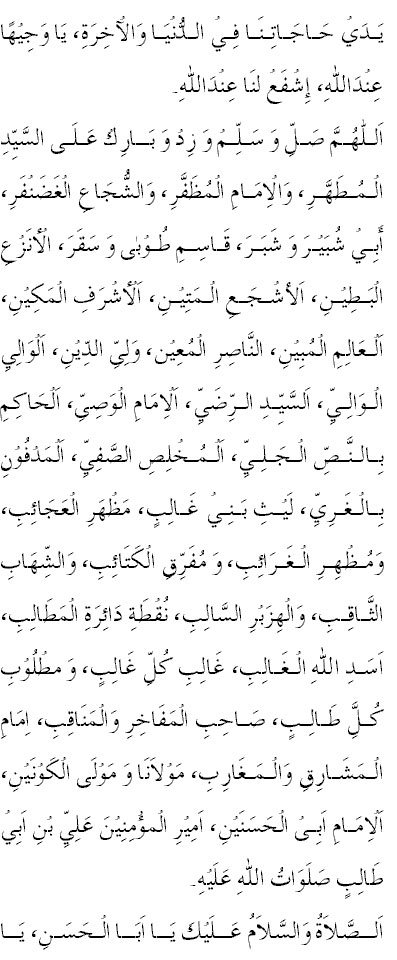 يَـدَيْ حَـاجَـاتِـنَـا فِـيْ الـدُّنْيَـا وَالْآخِـرَةِ، يَـا وَجِيْهًا
عِنْدَاللهِ، إِشْفَعْ لَنَا عِنْدَاللهِ.
اَللّٰهُـمَّ صَـلِّ وَ سَـلِّـمْ وَ زِدْ وَ بَـارِكْ عَـلَـى السَّيِّدِ
الْـمُـطَهَّـرِ، وَالْاِمَـامِ الْـمُظَفَّـرِ، وَالشُّجَـاعِ الْغَضَنْفَـرِ،
أَبِـيْ شُبَيْـرَ وَ شَبَـرَ، قَـاسِـمِ طُـوْبٰى وَ سَقَـرَ، اَلْاَنْزَعِ
الْبَـطِيْـنِ، اَلْأَشْـجَـعِ الْـمَتِيْـنِ، اَلْأَشْـرَفِ الْمَكِيْـنِ،
اَلْـعَالِمِ الْمُبِيْنِ، النَّاصِرِ الْمُعِيْنِ، وَلِيِّ الدِّيْنِ، اَلْوَالِيِ
الْـوَلِـيِّ، اَلسَّيِّـدِ الـرَّضِيِّ، اَلْاِمَامِ الْوَصِيِّ، اَلْحَاكِمِ
بِـالـنَّـصِّ الْـجَـلِـيِّ، اَلْـمُـخْلِصِ الصَّفِيِّ، اَلْمَدْفُوْنِ
بِـالْـغَـرِيِّ، لَيْـثِ بَـنِـيْ غَـالِـبٍ، مَظْهَرِ الْعَجَائِبِ،
وَمُـظْـهِـرِ الْـغَـرَائِبِ، وَ مُفَرِّقِ الْكَتَائِبِ، وَالشِّهَابِ
الثَّـاقِـبِ، وَالْهِزَبْرِ السَّالِبِ، نُقْطَةِ دَائِرَةِ الْمَطَالِبِ،
اَسَـدِ اللهِ الْـغَـالِبِ، غَالِبِ كُلِّ غَالِبٍ، وَ مَطْلُوْبِ
كُـلِّ طَـالِـبٍ، صَـاحِبِ الْمَفَاخِرِ وَالْمَنَاقِبِ، اِمَامِ
الْـمَشَـارِقِ وَالْـمَـغَارِبِ، مَوْلَانَا وَ مَوْلَى الْكَوْنَيْنِ،
اَلْاِمَـامِ اَبِـىْ الْحَسَنَيْنِ، اَمِيْرِ الْمُؤْمِنِيْنَ عَلِيِّ بْنِ اَبِيْ
طَالِبٍ صَلَوَاتُ اللهِ عَلَيْهِ.
اَلـصَّلَاةُ وَالسَّلَامُ عَـلَيْكَ يَـا اَبَـا الْـحَسَـنِ، يَـا